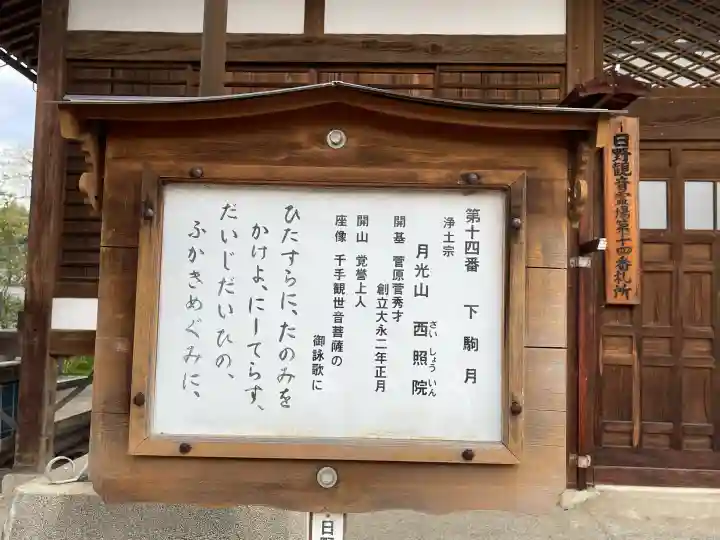 第十四番 下駒月
浄土宗
月光山 西照院
さいしょういん
開基 菅原菅秀才
創立大永二年正月
開山 覚誉上人
座像 千手観世音菩薩の
御詠歌に
ひたすらに、たのみを
かけよ、にーてらす、
だいじだいひの、
ふかきめぐみに、
日野観音霊場第十四番札所
日野